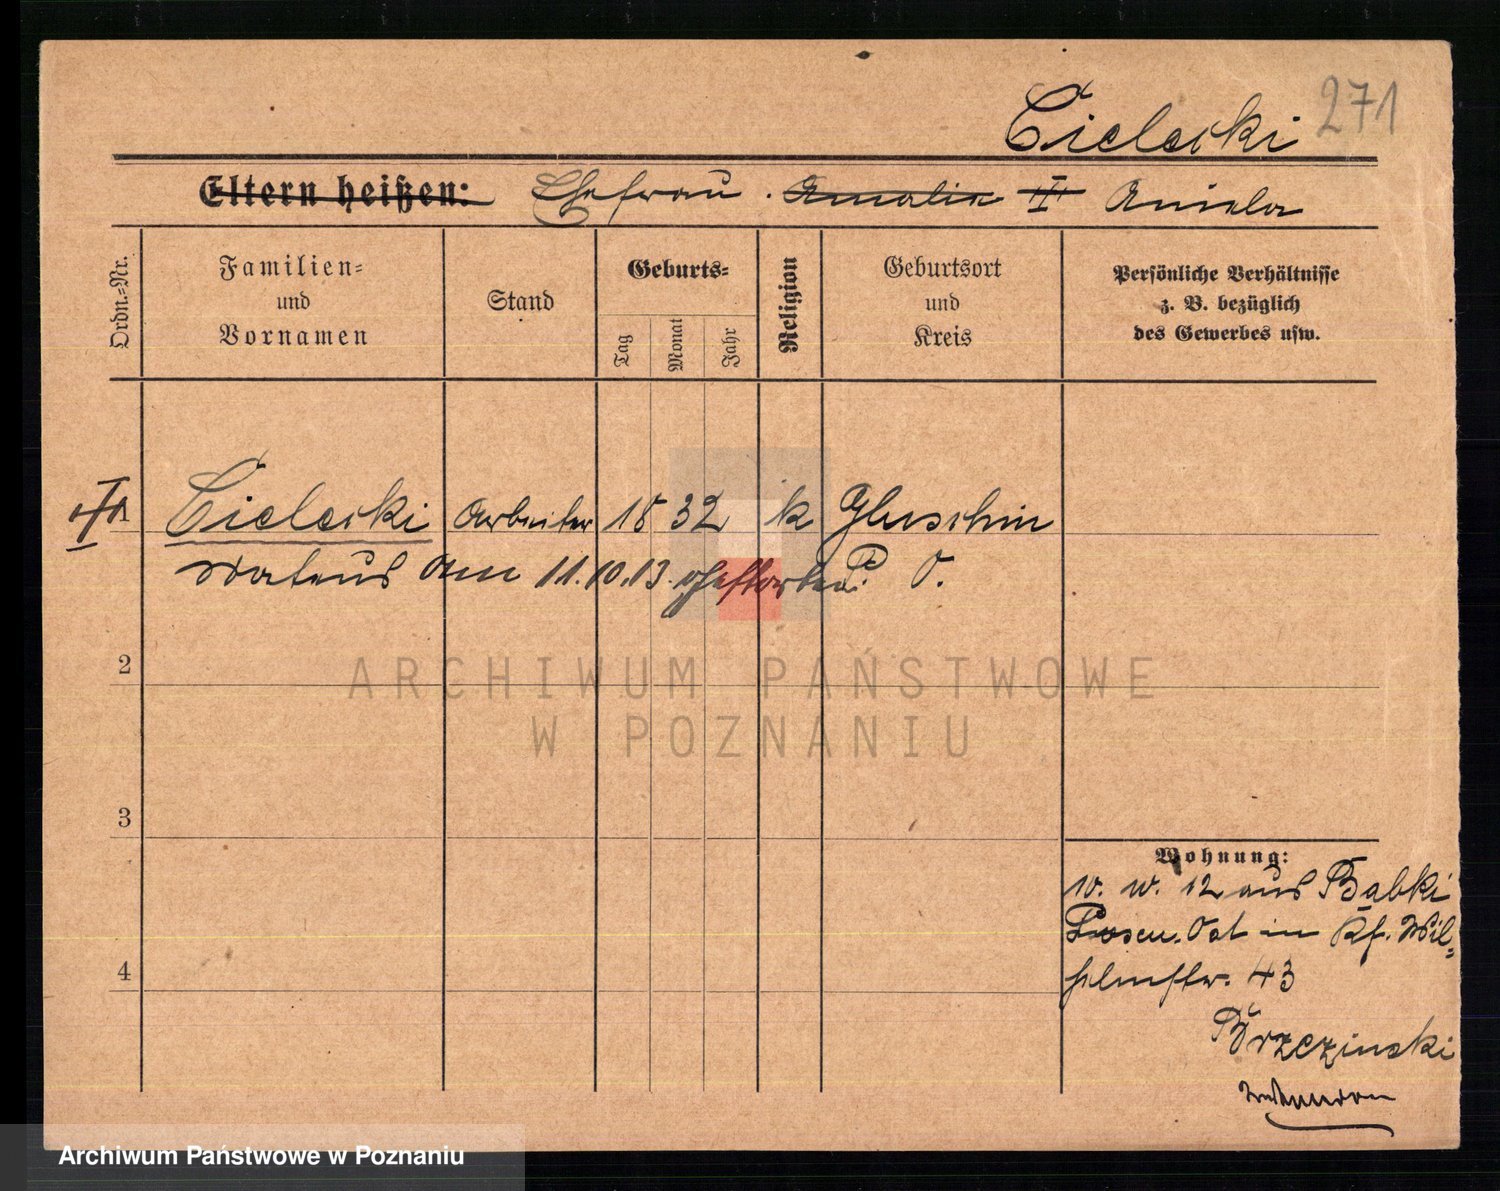 271
Cielecki
Eltern heißen: Ehefrau . Amalia I Aniela
Ordn.=Nr.
Familien=
und
Vornamen
Stand
Geburts=
Tag
Monat
Jahr
Religion
Geburtsort
und
Kreis
Persönliche Verhältnisse
z. B. bezüglich
des Gewerbes usw.
1 Cielecki Arbeiter 18 32 k Gluschin
am 11.10.13. gestorben P. O.
2
ARCHIWUM PAŃSTWOWE
W POZNANIU
3
Wohnung:
v. w. 12 aus Babki
Posen. Ost in Kf. Wil=
helmstr. 43
4
Brzezinski
Archiwum Państwowe w Poznaniu